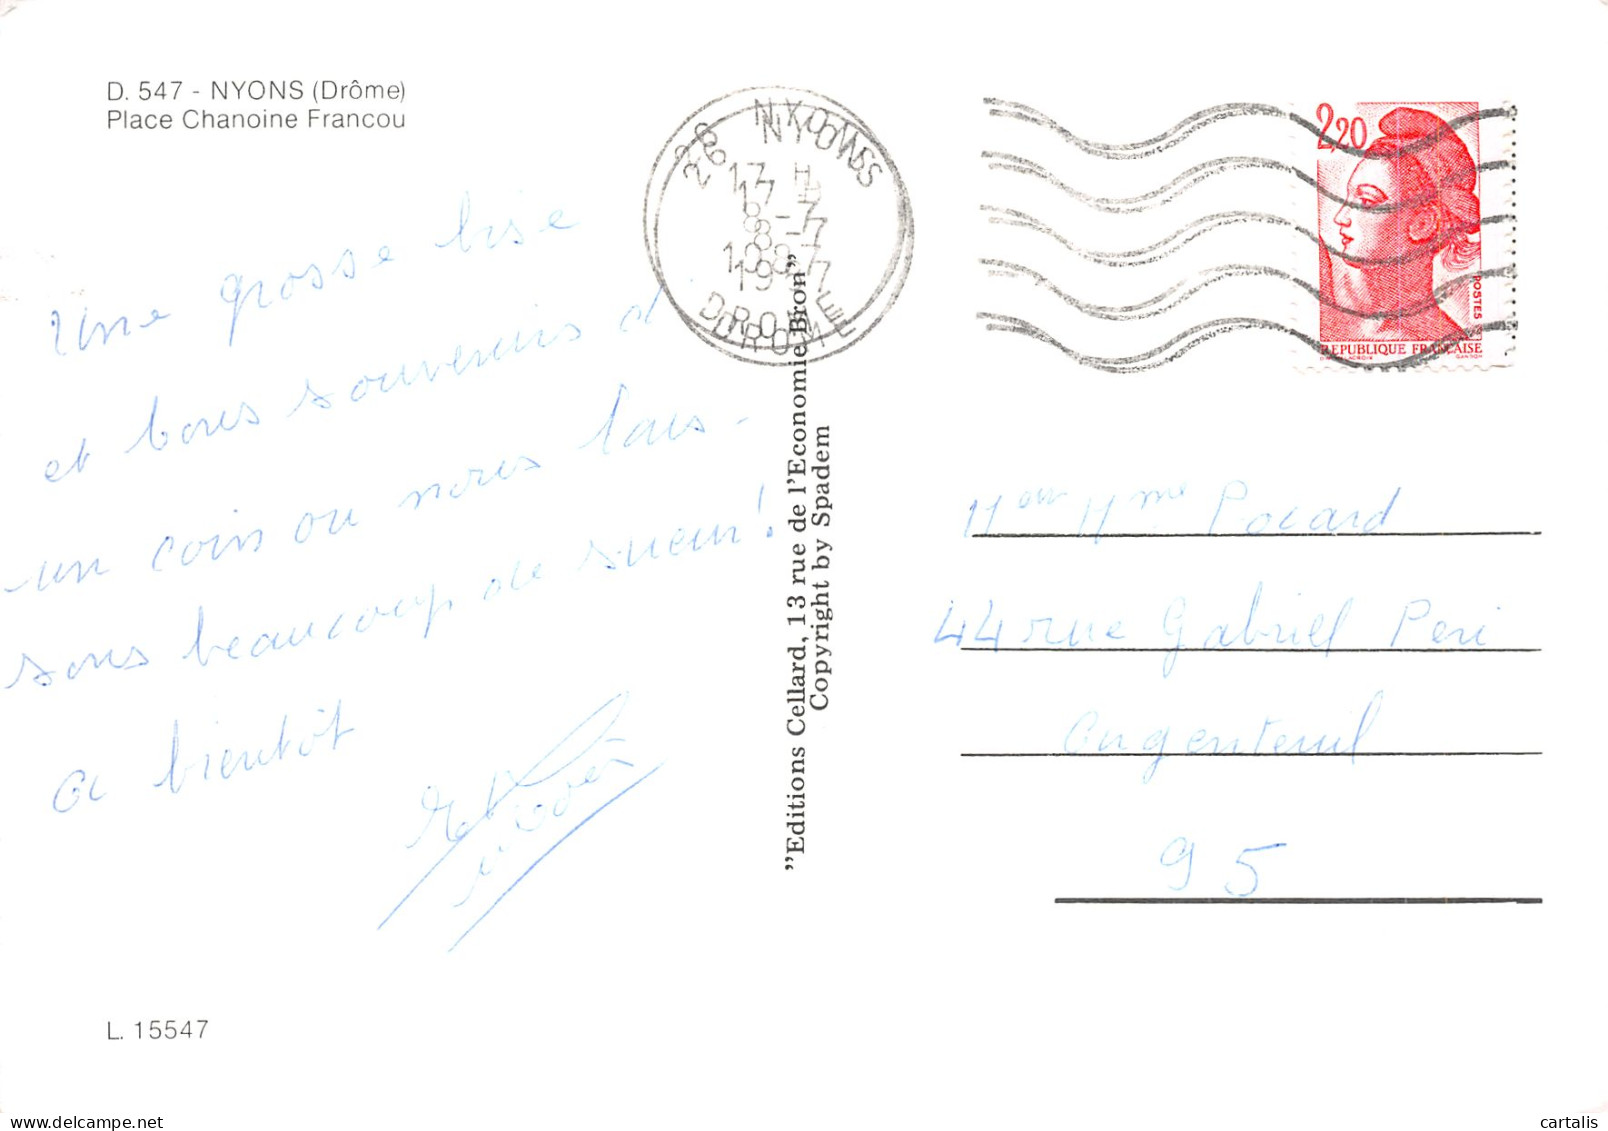 D. 547 - NYONS (Drôme)
Place Chanoine Francou
Une grosse bise
et bons souvenirs d'
un coin ou nous lais-
sons beaucoup de sueur!
A bientôt
L. 15547
26 NYONS
17 H
8-7
1987
DROME
"Editions Cellard, 13 rue de l'Economie Bron"
Copyright by Spadem
2,20
POSTES
REPUBLIQUE FRANÇAISE
GANDON
M ou Mme Pocard
44 rue Gabriel Peri
Argenteuil
95
cartalis